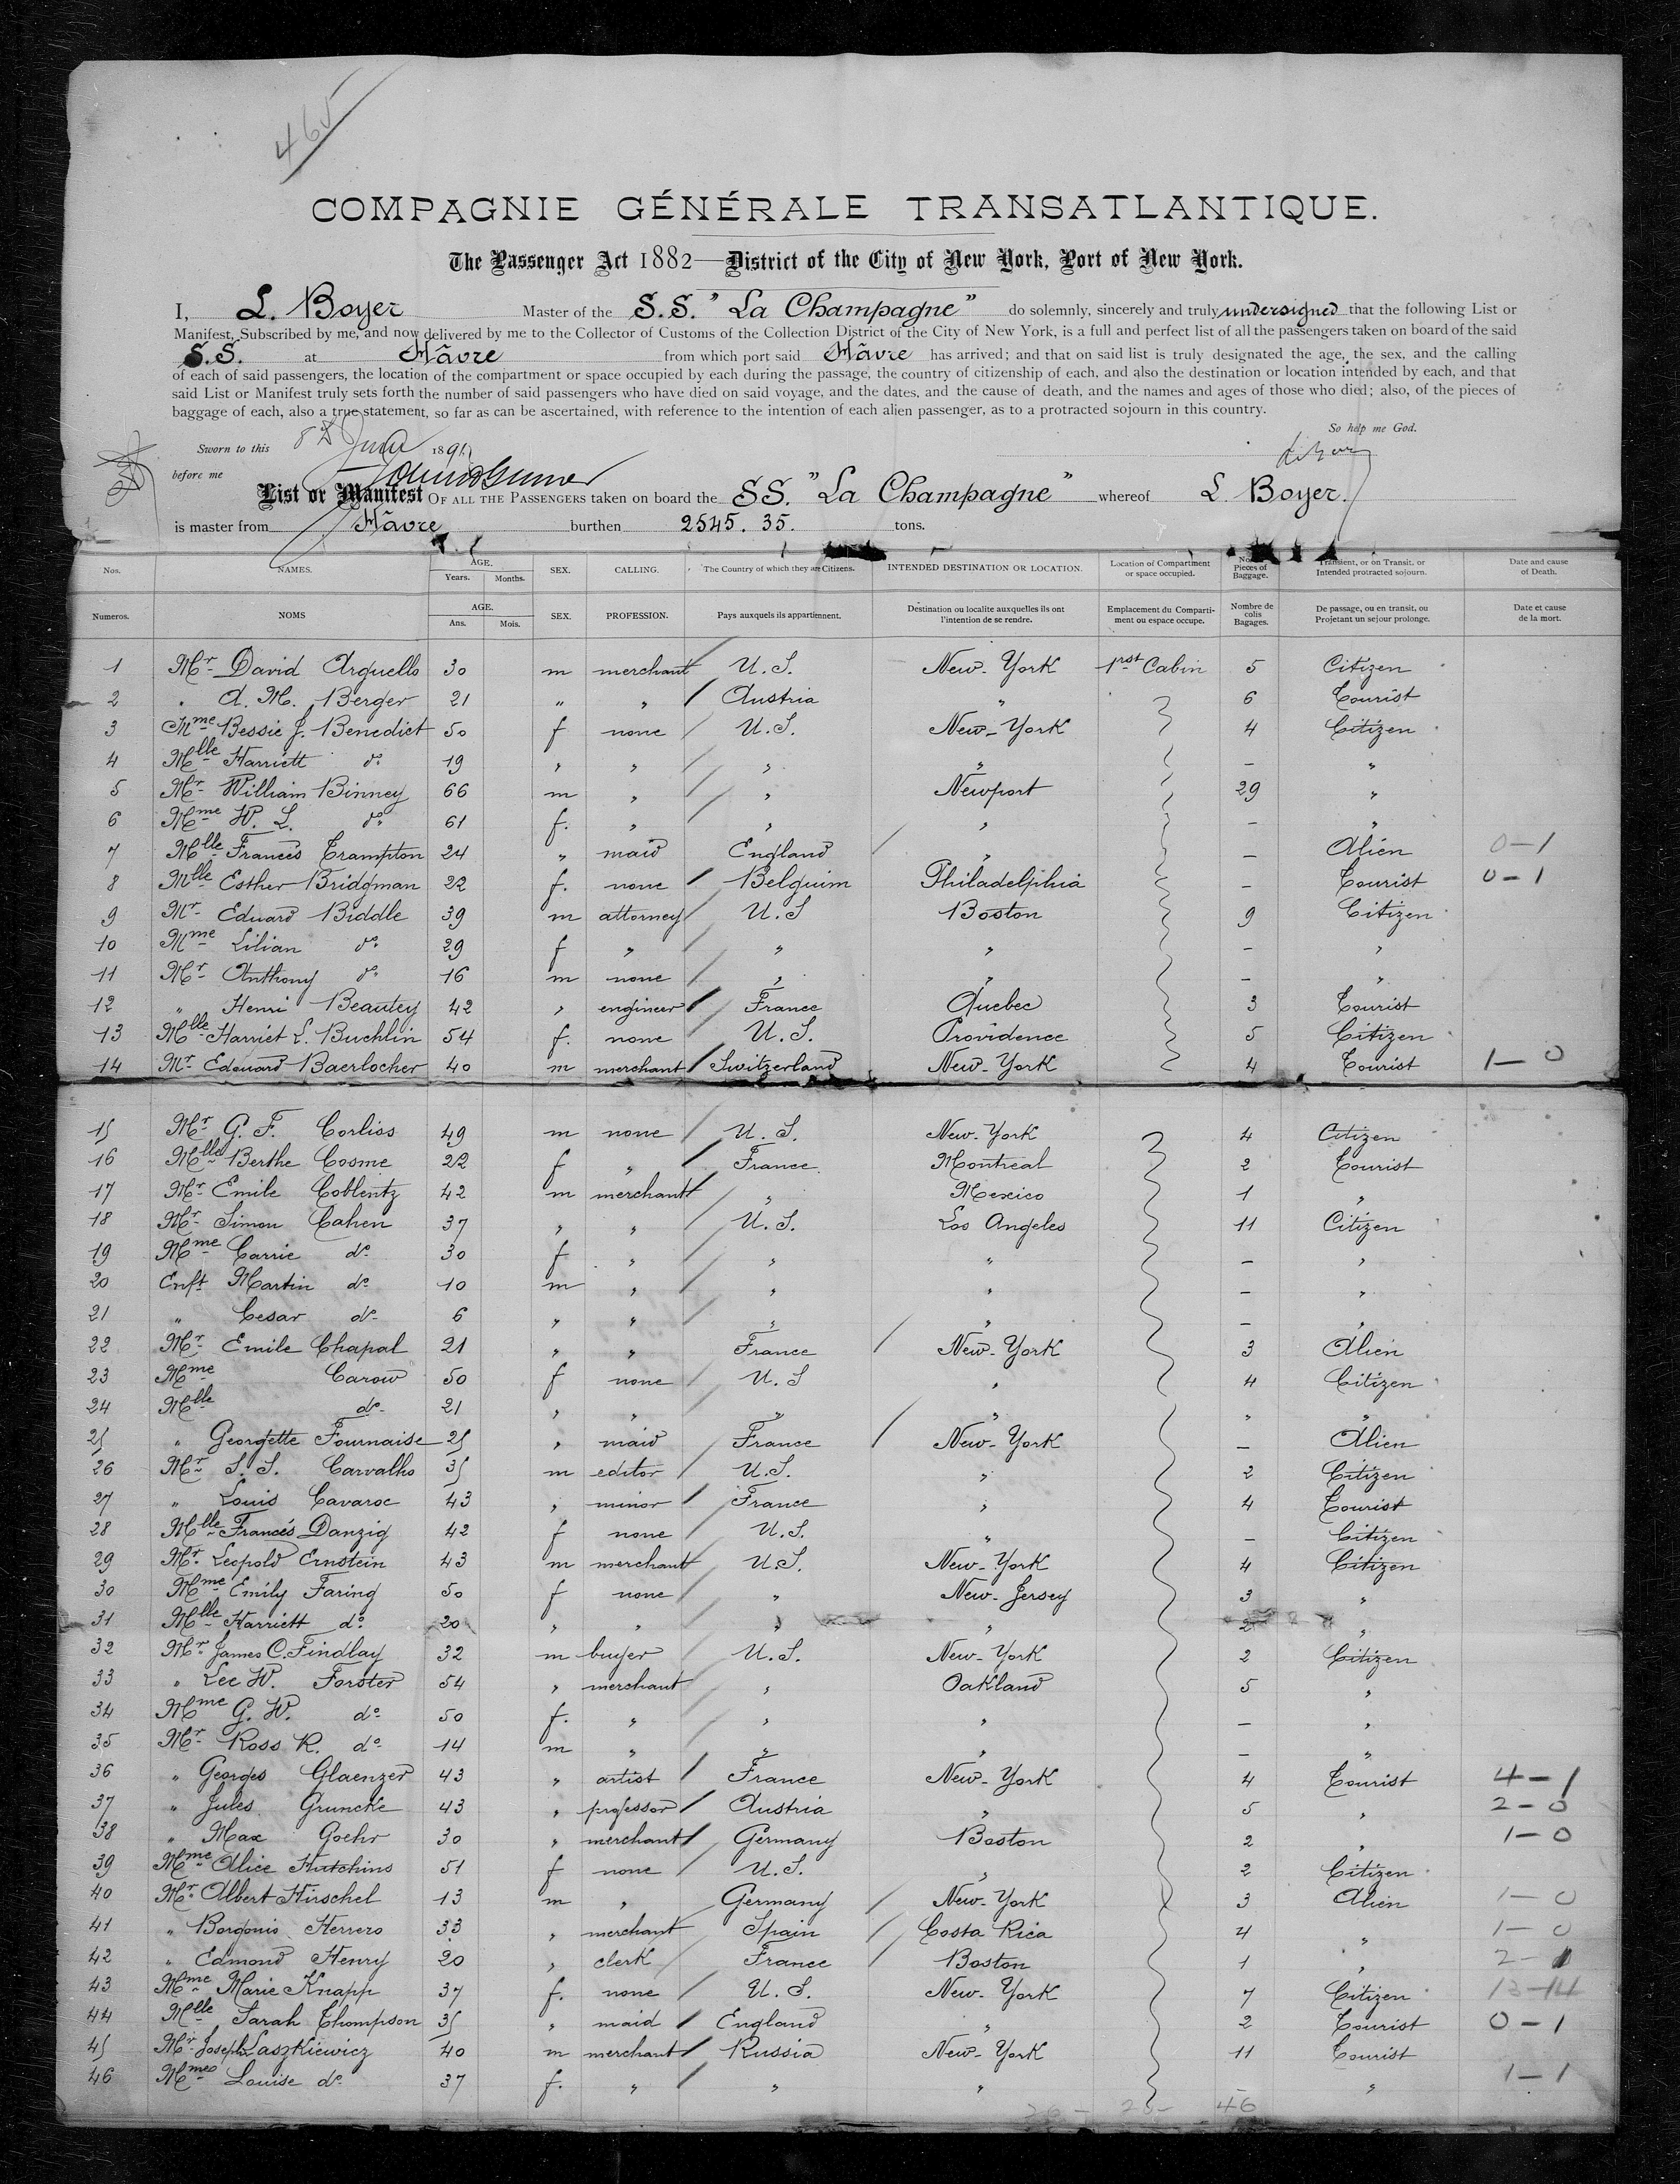 465
COMPAGNIE GÉNÉRALE TRANSATLANTIQUE.
The Passenger Act 1882—District of the City of New York, Port of New York.
I, L. Boyer Master of the S.S. "La Champagne" do solemnly, sincerely and truly undersigned that the following List or
Manifest, Subscribed by me, and now delivered by me to the Collector of Customs of the Collection District of the City of New York, is a full and perfect list of all the passengers taken on board of the said
S.S. at Hâvre from which port said Hâvre has arrived; and that on said list is truly designated the age, the sex, and the calling
of each of said passengers, the location of the compartment or space occupied by each during the passage, the country of citizenship of each, and also the destination or location intended by each, and that
said List or Manifest truly sets forth the number of said passengers who have died on said voyage, and the dates, and the cause of death, and the names and ages of those who died; also, of the pieces of
baggage of each, also a true statement, so far as can be ascertained, with reference to the intention of each alien passenger, as to a protracted sojourn in this country.
So help me God.
Sworn to this 8th June 189
before me
List or Manifest OF ALL THE PASSENGERS taken on board the SS. "La Champagne" whereof L. Boyer.
is master from Hâvre burthen 2545. 35. tons.
Nos. NAMES. AGE. Years. Months. SEX. CALLING. The Country of which they are Citizens. INTENDED DESTINATION OR LOCATION. Location of Compartment or space occupied. No. Pieces of Baggage. Transient, or on Transit, or Intended protracted sojourn. Date and cause of Death.
Numeros. NOMS AGE. Ans. Mois. SEX. PROFESSION. Pays auxquels ils appartiennent. Destination ou localite auxquelles ils ont l'intention de se rendre. Emplacement du Compartiment ou espace occupe. Nombre de colis Bagages. De passage, ou en transit, ou Projetant un sejour prolonge. Date et cause de la mort.
1 Mr David Arguello 30 m merchant U.S. New-York 1rst Cabin 5 Citizen
2 " A. M. Berger 21 " " Austria " 6 Tourist
3 Mme Bessie J. Benedict 50 f none U.S. New-York 4 Citizen
4 Mlle Harriett do 19 " " " " - "
5 Mr William Binney 66 m " " Newport 29 "
6 Mme W. L. do 61 f. " " " - "
7 Mlle Francès Crampton 24 " maid England " - Alien 0-1
8 Mlle Esther Bridgman 22 f. none Belguim Philadelphia - Tourist 0-1
9 Mr Eduard Biddle 39 m attorney U.S Boston 9 Citizen
10 Mme Lilian do 29 f " " " - "
11 Mr Anthony do 16 m none " " - "
12 " Henri Beautey 42 " engineer France Quebec 3 Tourist
13 Mlle Harriet L. Buchlin 54 f. none U.S. Providence 5 Citizen
14 Mr Edouard Baerlocher 40 m merchant Switzerland New-York 4 Tourist 1-0
15 Mr G. F. Corliss 49 m none U.S. New-York 4 Citizen
16 Mlle Berthe Cosme 22 f " France Montreal 2 Tourist
17 Mr Emile Coblentz 42 m merchant " Mexico 1 "
18 Mr Simon Cahen 37 " " U.S. Los Angeles 11 Citizen
19 Mme Carrie do 30 f " " " - "
20 Enft Martin do 10 m " " " - "
21 " Cesar do 6 " " " " - "
22 Mr Emile Chapal 21 " " France New-York 3 Alien
23 Mme Carow 50 f none U.S " 4 Citizen
24 Mlle do 21 " " " " " "
25 " Georgette Fournaise 25 " maid France New-York - Alien
26 Mr S. S. Carvalho 35 m editor U.S. " 2 Citizen
27 " Louis Cavaroc 43 " minor France " 4 Tourist
28 Mlle Francès Danzig 42 f none U.S. " - Citizen
29 Mr Leopold Ernstein 43 m merchant U.S. New-York 4 Citizen
30 Mme Emily Faring 50 f none " New-Jersey 3 "
31 Mlle Harriett do 20 " " " " 2 "
32 Mr James C. Findlay 32 m buyer U.S. New-York 2 Citizen
33 " Lee W. Forster 54 " merchant " Oakland 5 "
34 Mme G. W. do 50 f. " " " - "
35 Mr Ross R. do 14 m " " " - "
36 " Georges Glaenzer 43 " artist France New-York 4 Tourist 4-1
37 " Jules Gruncke 43 " professor Austria " 5 " 2-0
38 " Max Goehr 30 " merchant Germany Boston 2 " 1-0
39 Mme Alice Hutchins 51 f none U.S. " 2 Citizen
40 Mr Albert Hirschel 13 m " Germany New-York 3 Alien 1-0
41 " Borgonio Herrero 33 " merchant Spain Costa Rica 4 " 1-0
42 " Edmond Henry 20 " clerk France Boston 1 " 2-0
43 Mme Marie Knapp 37 f. none U.S. New-York 7 Citizen 13-14
44 Mlle Sarah Thompson 35 " maid England " 2 Tourist 0-1
45 Mr Joseph Laszkiewicz 40 m merchant Russia New-York 11 Tourist
46 Mme Louise do 37 f. " " " - " 1-1
26- 20- 46